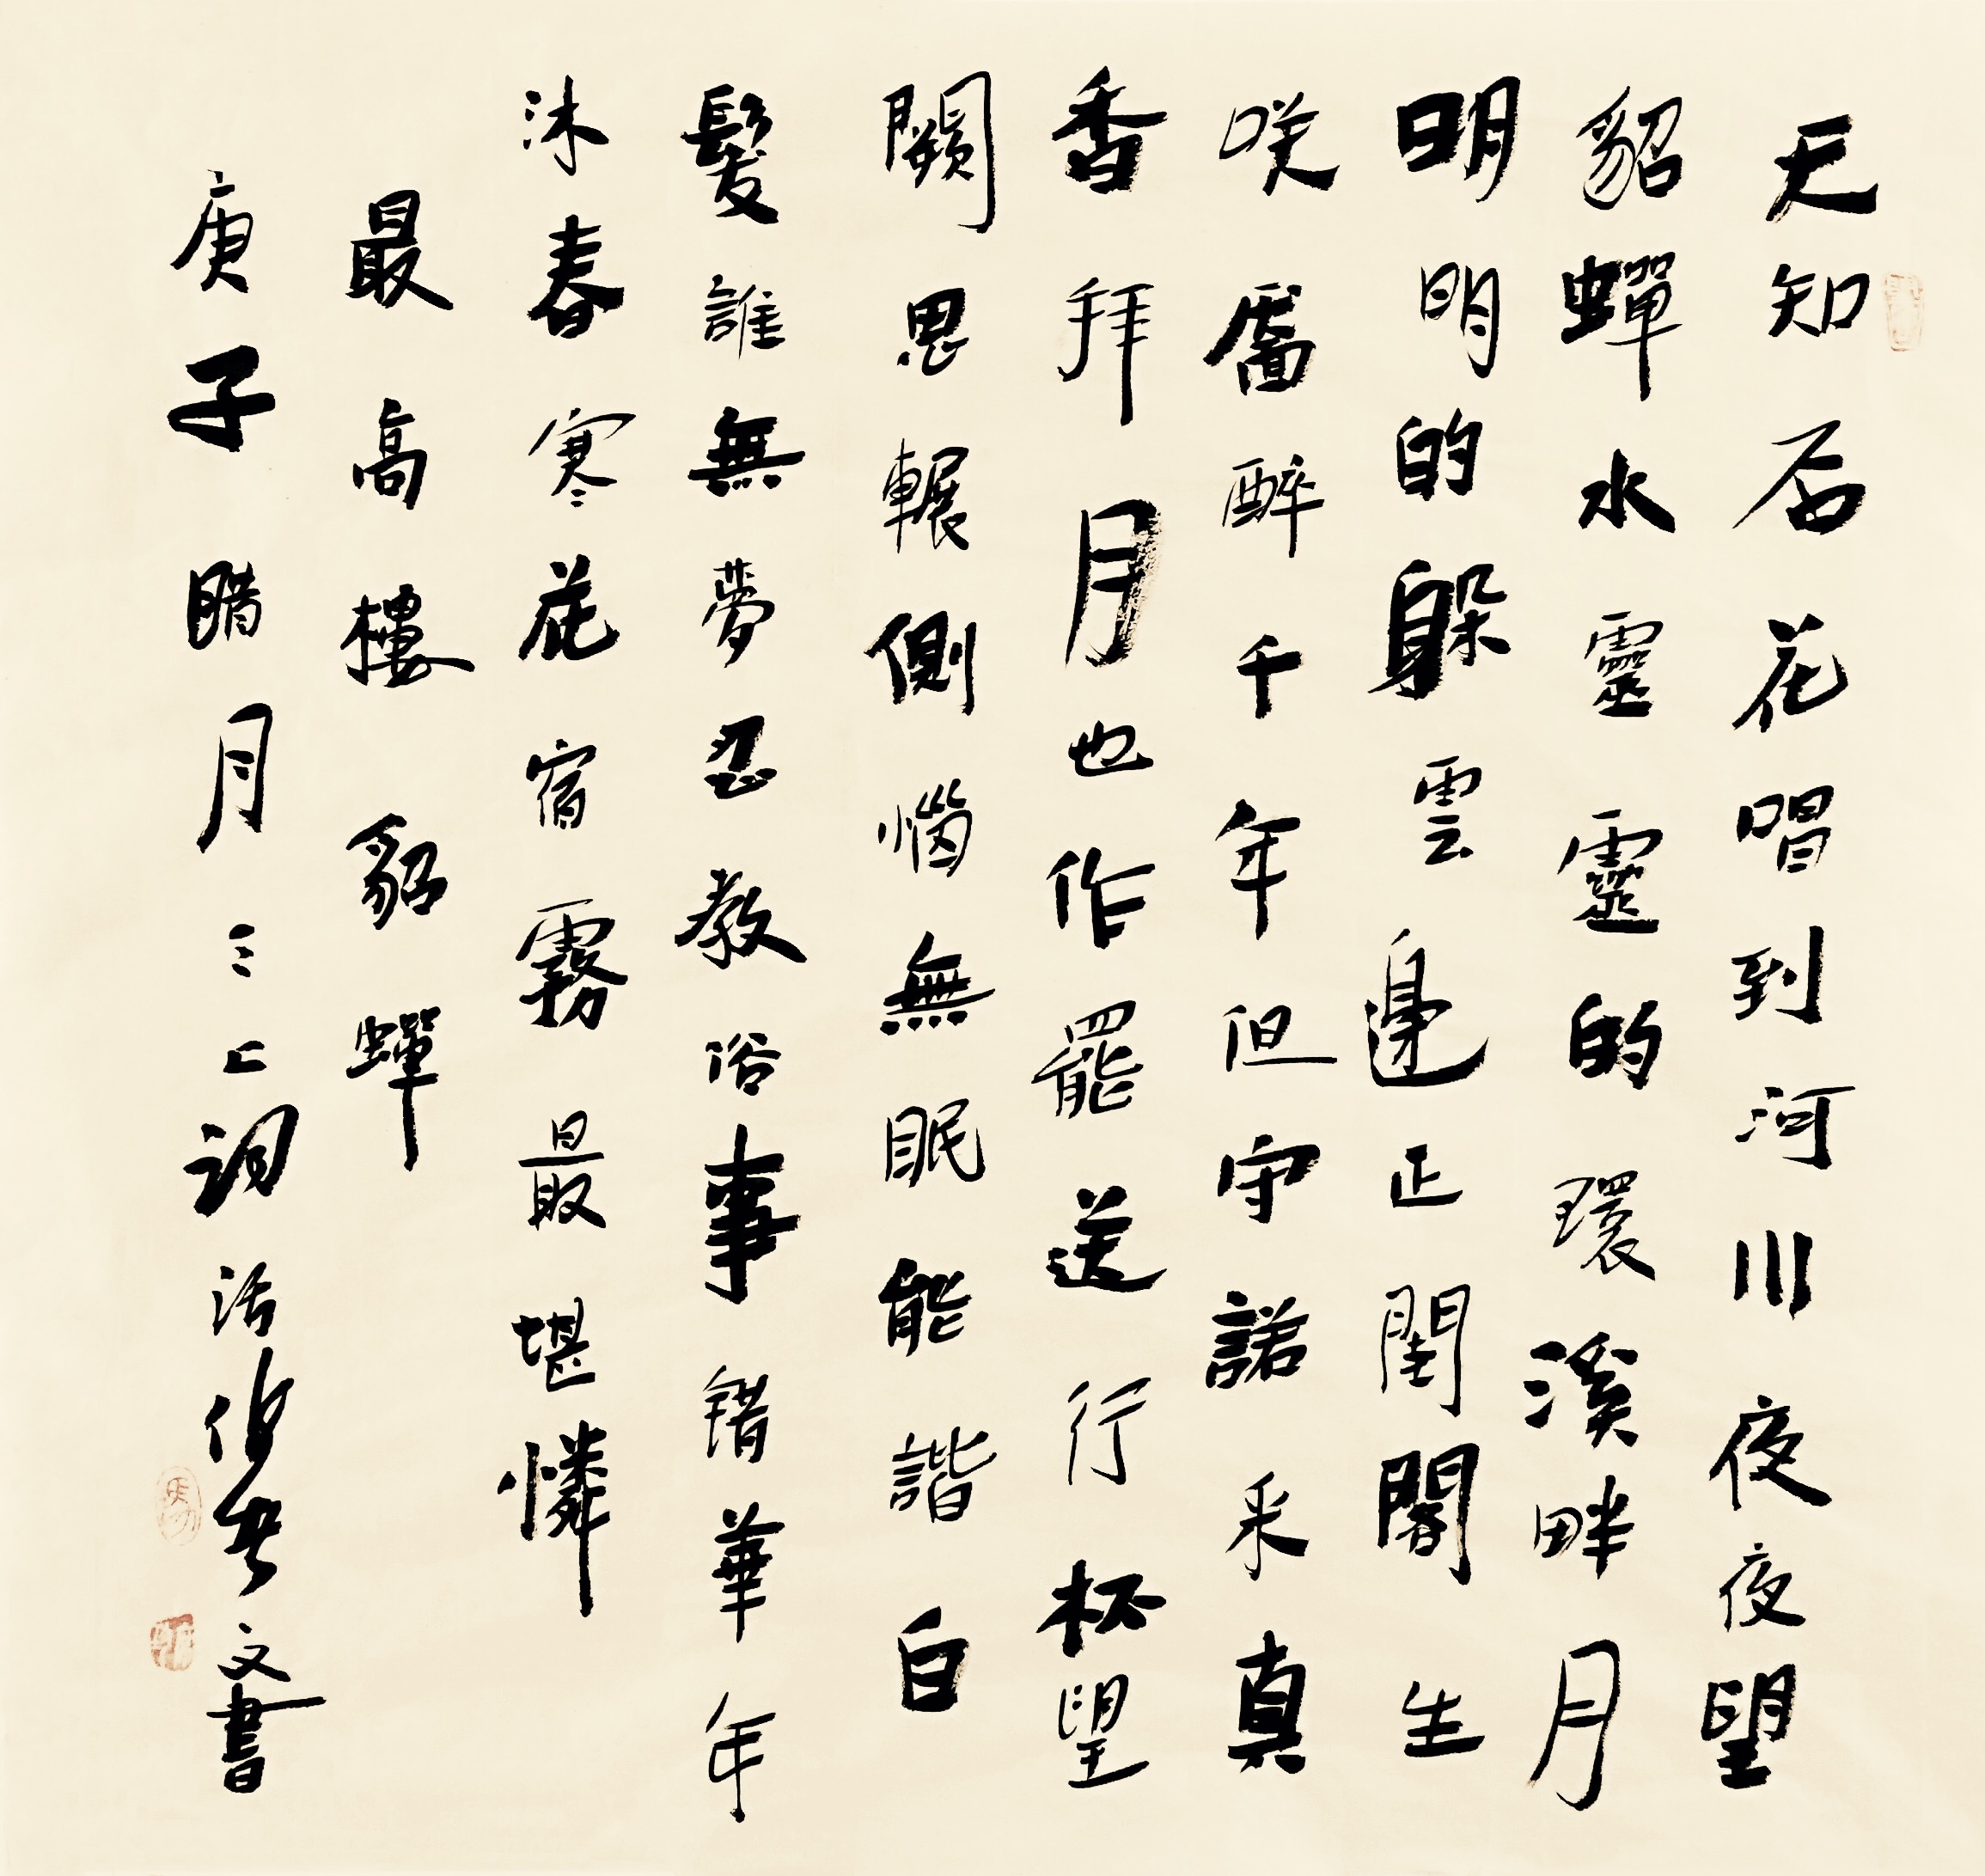 天知否花唱到河川夜夜望
貂蟬水靈靈的環溪畔月
明明的躲雲邊正閨閣生
咲靨醉千年但守諾采真
香拜月也作罷送行杯望
闕思輾側惱無眠能諧白
髮誰無夢忍教俗事錯華年
沐春寒花宿霧最堪憐
最高樓貂蟬
庚子腊月詞文書